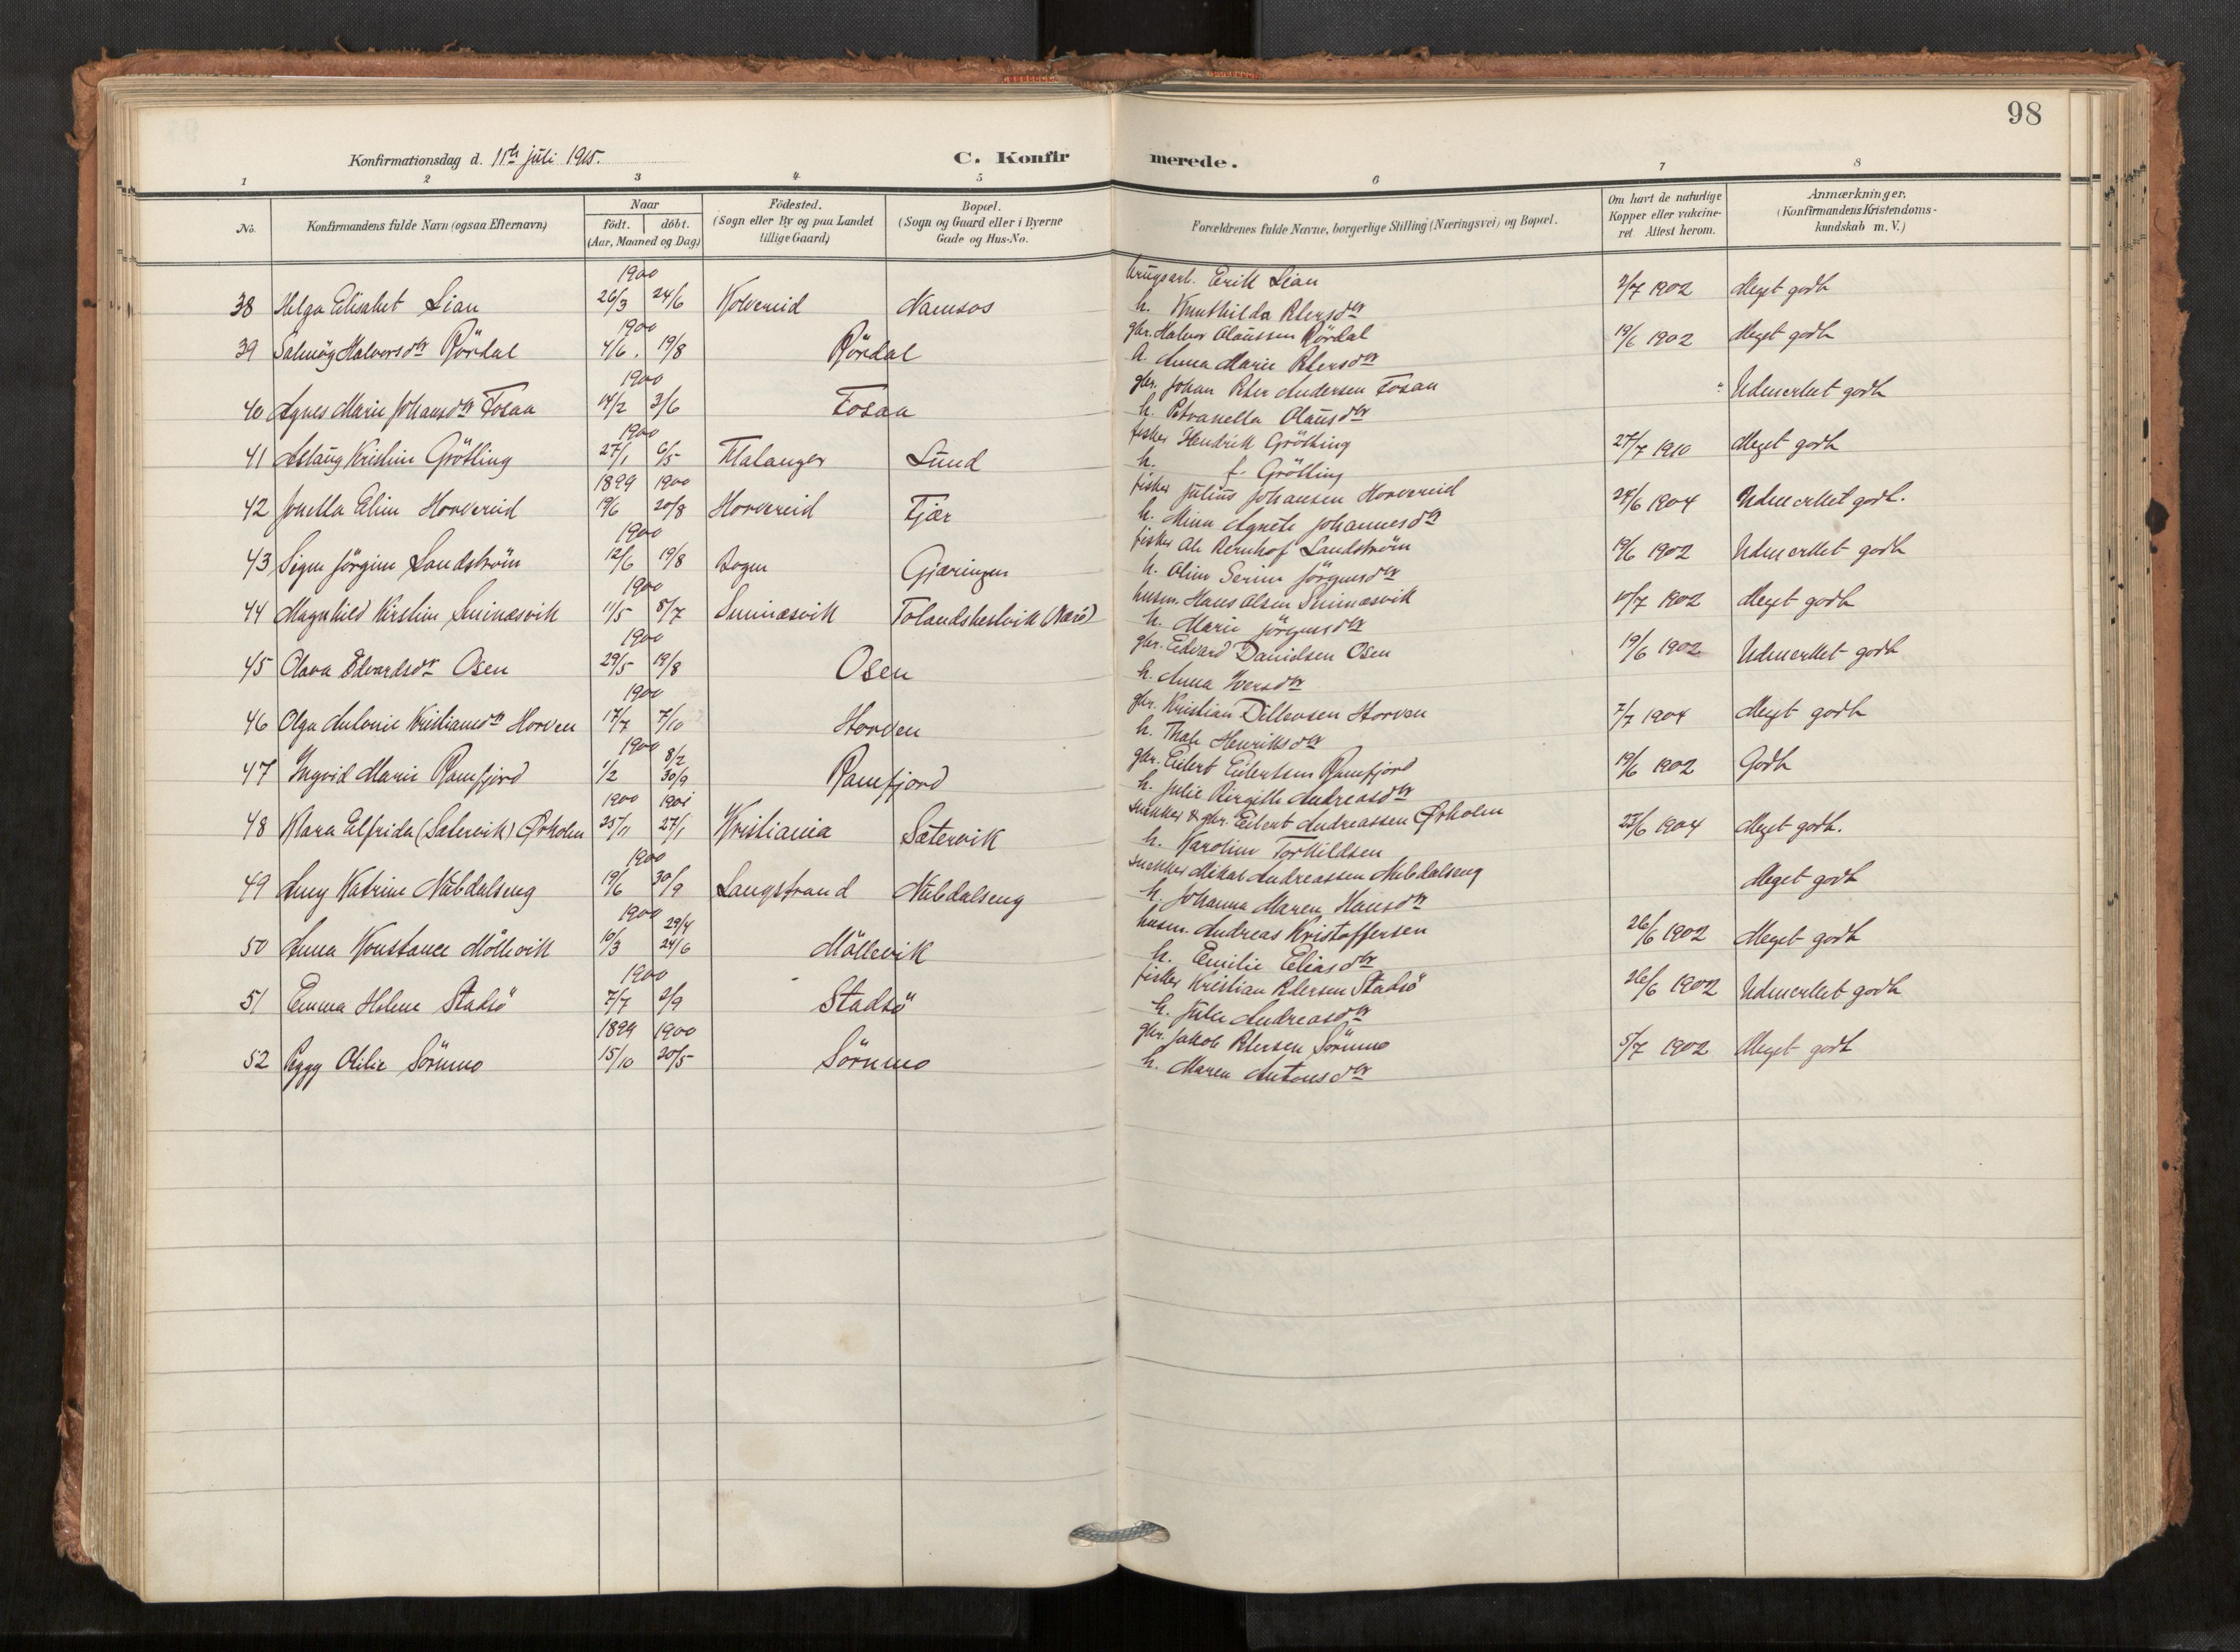 98
Konfirmationsdag d. 11te juli 1915.
C. Konfirmerede.
1 2 3 4 5 6 7 8
No.
Konfirmandens fulde Navn (ogsaa Efternavn)
Naar
födt. döbt.
(Aar, Maaned og Dag)
Födested.
(Sogn eller By og paa Landet
tillige Gaard)
Bopæl.
(Sogn og Gaard eller i Byerne
Gade og Hus-No.
Forældrenes fulde Navne, borgerlige Stilling (Næringsvei) og Bopæl.
Om havt de naturlige
Kopper eller vakcine-
ret. Attest herom.
Anmærkninger.
(Konfirmandens Kristendoms-
kundskab m. V.)
1900 brugsarb. Erik Lian
38 Helga Elisabet Lian 26/3 24/6 Kolvereid Namsos h. Knuthilda Petersdtr 2/7 1902 Meget godt
1900 gbr. Halvor Olaussen Rördal
39 Solmöy Halvorsdtr Rördal 4/6. 19/8 Rördal h. Anna Marie Petersdtr 19/6 1902 Meget godt
1900 gbr. Johan Peter Andersen Fosaa
40 Agnes Marie Johansdtr Fosaa 14/2 3/6 Fosaa h. Petranella Olausdtr " Udmerket godt
1900 fisker Hendrik Grötling
41 Aslaug Kristine Grötling 27/1 6/5 Malanger Lund h. f. Grötting 27/7 1910 Meget godt
1899 1900 fisker Julius Johansen Horvereid
42 Jonetta Eline Horvereid 19/6 20/8 Horvereid Fjær h. Mina Agnete Johannesdtr 24/6 1904 Udmerket godt.
1900 fisker Ole Bernhof Landström
43 Signe Jörgine Landström 12/6 19/8 Bogen Gjæringen h. Oline Serine Jörgensdtr 19/6 1902 Udmerket godt
1900 husm. Hans Olsen Sninæsvik
44 Magnhild Kirstine Sninæsvik 11/5 8/7 Sninæsvik Folandshestvik (Nærö) h. Marie Jörgensdtr 10/7 1902 Meget godt
1900 gbr. Edvard Danielsen Osen
45 Olava Edvardsdtr Osen 29/5 19/8 Osen h. Anna Iversdtr 19/6 1902 Udmerket godt
1900 gbr. Kristian Ditlevsen Horven
46 Olga Antonie Kristiansdtr Horven 17/7 7/10 Horven h. Thale Henriksdtr 7/7 1904 Meget godt
1900 8/2 gbr. Eilert Eilertsen Ramfjord
47 Ingvid Marie Ramfjord 1/2 30/9 Ramfjord h. Julie Birgitte Andreasdtr 19/6 1902 Godt
1900 1901 snekker & gbr. Eilert Andreassen Ørholm
48 Klara Elfrida (Sætervik) Ørholm 25/11 27/1 Kristiania Sætervik h. Karoline Torkildsen 23/6 1904 Meget godt.
1900 snekker Mikal Andreassen Nubdalseng
49 Amy Katrine Nubdalseng 19/6 30/9 Langstrand Nubdalseng h. Johanna Maren Hansdtr Meget godt
1900 29/4 husm. Andreas Kristoffersen
50 Anna Konstance Möllevik 10/3 24/6 Möllevik h. Emilie Eliasdtr 26/6 1902 Meget godt
1900 fisker Kristian Petersen Stadsö
51 Emma Helene Stadsö 7/7 2/9 Stadsö h. Julie Andreasdtr 26/6 1902 Udmerket godt
1899 1900 gbr. Jakob Petersen Sörumo
52 Peggy Otilie Sörumo 15/10 20/5 Sörumo h. Maren Antonsdtr 5/7 1902 Meget godt